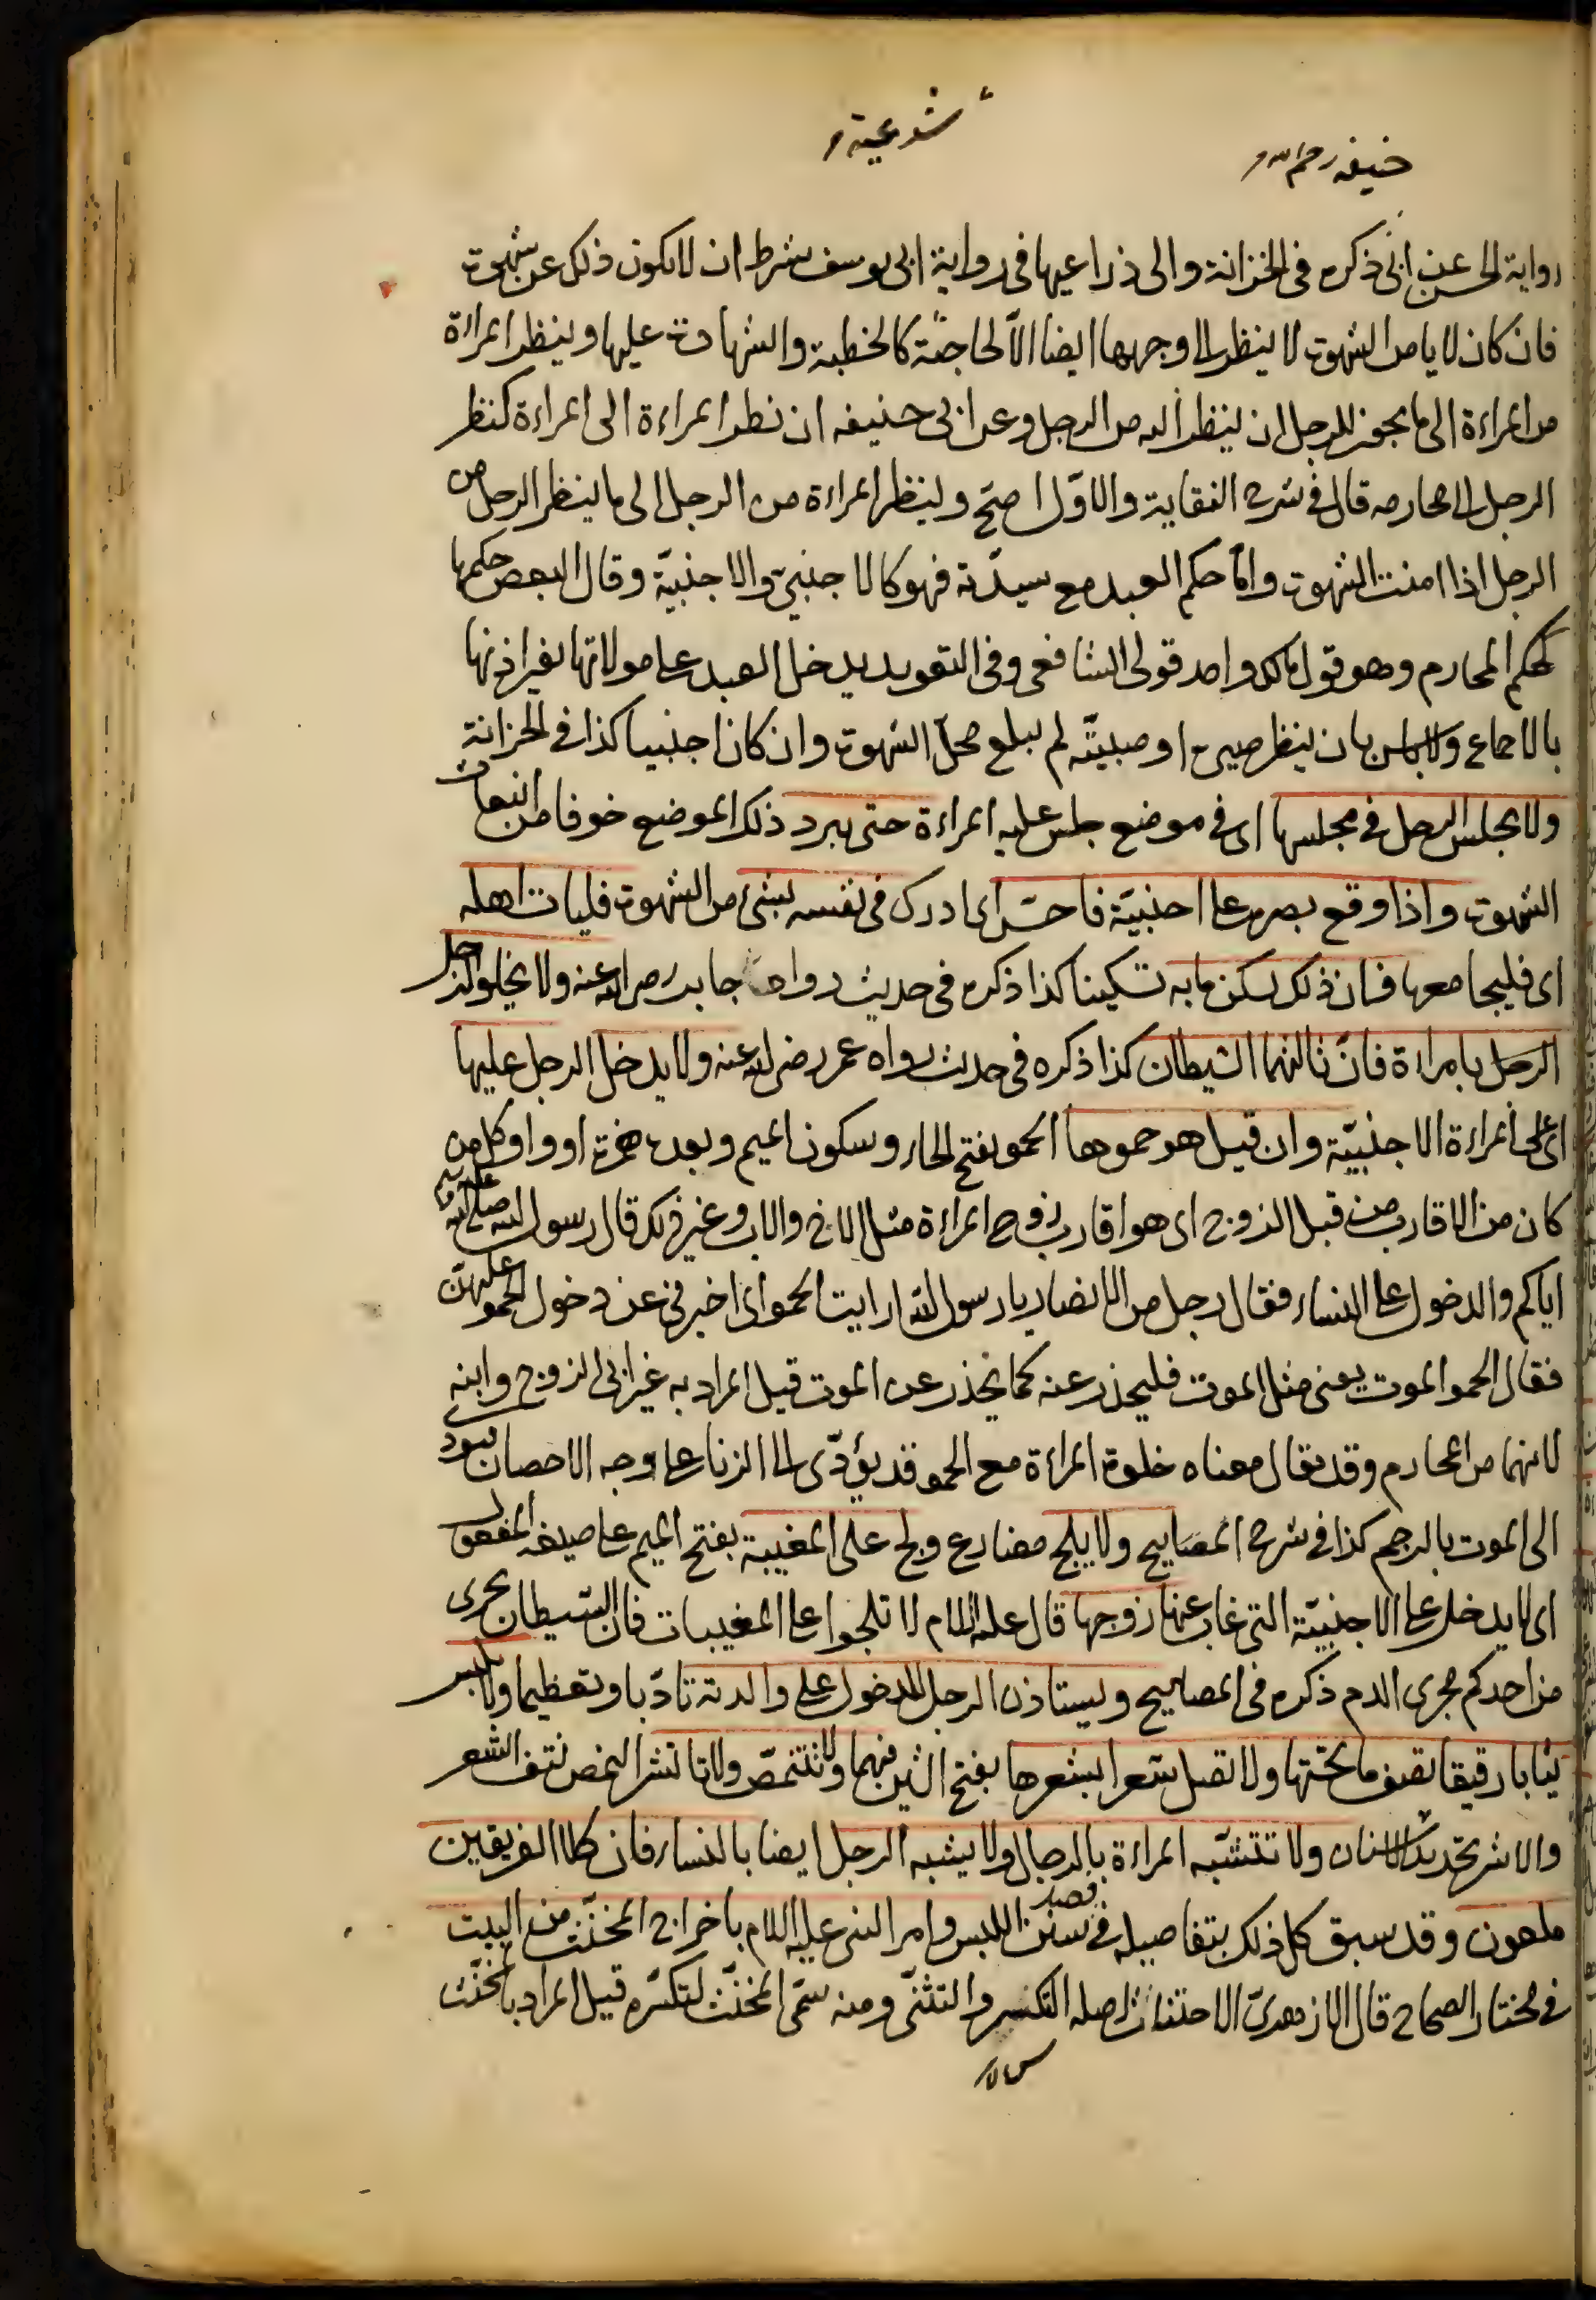 شرعية
حنيفه رحم الله
رواية الحسن عن ابى ذكره فى الخزانة والى ذراعيها فى رواية ابى يوسف بشرط ان لا يكون ذلك عن شهوت
فان كان لا يامن الشهوت لا ينظر الى وجهها ايضا الا لحاجة كالخطبة والشهادت عليها وينظر المراءة
من المراءة الى ما يجوز للرجل ان ينظر اليه من الرجل وعن ابى حنيفه ان نظر المراءة الى المراءة كنظر
الرجل الى محارمه قال فى شرح النقاية والاوّل اصح وينظر المراءة من الرجل الى ما ينظر الرجل من
الرجل اذا امنت الشهوت وامّا حكم العبد مع سيدته فهو كالاجنبىّ والاجنبيّة وقال البعض حكمها
كحكم المحارم وهو قول مالك واحد قولى الشافعى وفى التقويد يدخل العبد على مولاتها بغير اذنها
بالاجماع ولا باس بان ينظر صبى او صبيّة لم يبلغ محلّ الشهوت وان كان اجنبيا كذا فى الخزانة
ولا يجلس الرجل فى مجلسها اى فى موضع جلس عليه المراءة حتى يبرد ذلك الموضع خوفا من انبعاث
الشهوت واذا وقع بصره على اجنبيّة فاحسّ اى ادرك فى نفسه بشئ من الشهوت فليات اهله
اى فليجامعها فان ذلك يسكن ما به تسكينا كذا ذكره فى حديث رواه جابر رضى الله عنه ولا يخلونّ رجل
الرجل بامراءة فانّ ثالثهما الشيطان كذا ذكره فى حديث رواه عمر رضى الله عنه ولا يدخل الرجل عليها
اى على المراءة الاجنبيّة وان قيل هو حموها الحمو بفتح الحاء وسكون الميم وبعده همزة او واو كل من
كان من الاقارب من قبل الزوج اى هو اقارب زوج المراءة مثل الاخ والاب وغير ذلك قال رسول الله صلى الله عليه وسلم
اياكم والدخول على النساء فقال رجل من الانصار يا رسول الله ارايت الحمو اى اخبرنى عن دخول الحمو عليهنّ
فقال الحمو الموت يعنى مثل الموت فليحذر عنه كما يحذر عن الموت قيل المراد به غير ابى الزوج وابنه
لانهما من المحارم وقد يقال معناه خلوة المراءة مع الحمو قد يؤدّى الى الزنا على وجه الاحصان فيؤدى
الى الموت بالرجم كذا فى شرح المصابيح ولا يلج مضارع ولج على المغيبة بفتح الميم على صيغة المفعول
اى لا يدخل على الاجنبيّة التى غاب عنها زوجها قال عليه السلام لا تلجوا على المغيبات فان الشيطان يجرى
من احدكم مجرى الدم ذكره فى المصابيح ويستاذن الرجل للدخول على والدته تادّبا وتعظيما ولا تلبس
ثيابا رقيقا تصف ما تحتها ولا تصل شعرا بشعرها بفتح الشين فيهما ولا تتنمّص ولا تاتشر النمص نتف الشعر
والاشر تحديد الاسنان ولا تتشبّه المراءة بالرجال ولا يشبه الرجل ايضا بالنساء فان كلا الفريقين
ملعون وقد سبق كل ذلك بتفاصيله فى فصل سنن اللبس وامر النبى عليه السلام باخراج المخنّث من البيت
فى مختار الصحاح قال الازهرىّ الاختناث اصله التكسر والتثنّى ومنه سمّى المخنّث لتكسّره قيل المراد بالمخنّث